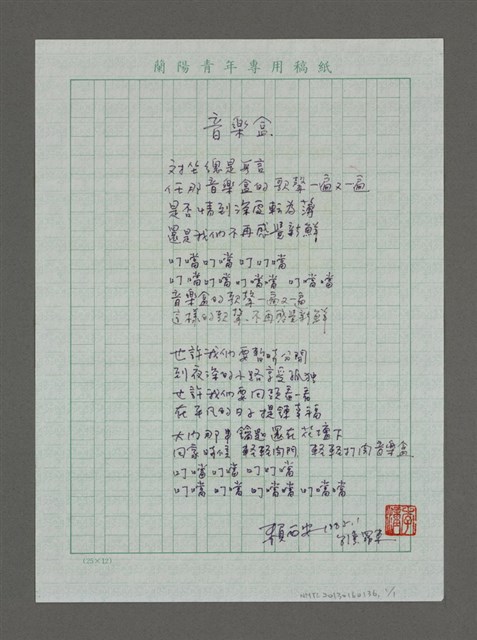 蘭陽青年專用稿紙
音樂盒
对坐總是無言
任那音樂盒的歌聲一遍又一遍
是否情到深處轉為薄
還是我們不再感覺新鮮
叮噹叮噹叮叮噹
叮噹叮噹叮噹噹 叮噹噹
音樂盒的歌聲一遍又一遍
這樣的歌聲不再感覺新鮮
也許我們要暫時分開
到夜深的小路享受孤独
也許我們要回頭看一看
在平凡的日子提鍊幸福
大门那串鑰匙還在花壇下
回家時候 輕輕開門 輕輕打開音樂盒
叮噹叮噹 叮叮噹
叮噹 叮噹 叮噹噹叮噹噹
賴西安 1982.1
羅東
(25×12)
NMTL20130160136, 1/1